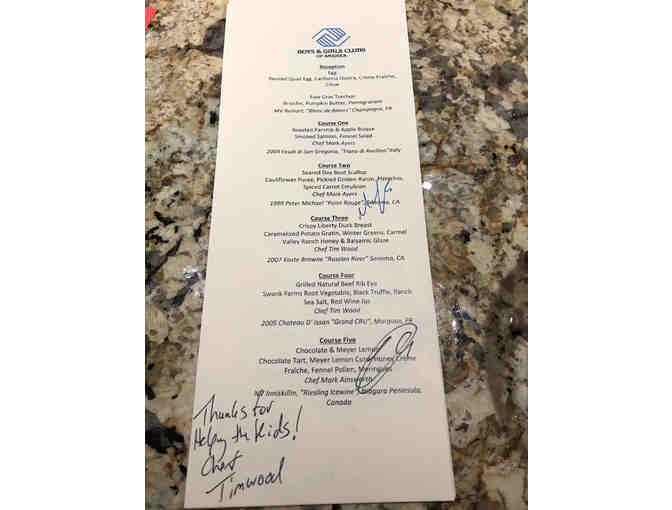 BOYS & GIRLS CLUBS
OF AMERICA
Reception
Egg
Poached Quail Egg, California Osetra, Crème Fraîche,
Chive
Foie Gras Torchon
Brioche, Pumpkin Butter, Pomegranate
NV Ruinart, "Blanc de Blancs" Champagne, FR
Course One
Roasted Parsnip & Apple Bisque
Smoked Salmon, Fennel Salad
Chef Mark Ayers
2004 Feudi di San Gregorio, "Fiano di Avellino" Italy
Course Two
Seared Day Boat Scallop
Cauliflower Puree, Pickled Golden Raisin, Pistachio,
Spiced Carrot Emulsion
Chef Mark Ayers
1999 Peter Michael "Point Rouge", Sonoma, CA
Course Three
Crispy Liberty Duck Breast
Caramelized Potato Gratin, Winter Greens, Carmel
Valley Ranch Honey & Balsamic Glaze
Chef Tim Wood
2007 Kosta Browne "Russian River" Sonoma, CA
Course Four
Grilled Natural Beef Rib Eye
Swank Farms Root Vegetable, Black Truffle, Ranch
Sea Salt, Red Wine Jus
Chef Tim Wood
2005 Chateau D' Issan "Grand CRU", Margaux, FR
Course Five
Chocolate & Meyer Lemon
Chocolate Tart, Meyer Lemon Curd, Honey Crème
Fraîche, Fennel Pollen, Meringues
Chef Mark Ainsworth
NV Inniskillin, "Riesling Icewine" Niagara Peninsula,
Canada
Thanks for
Helping the Kids!
Chef
Tim wood